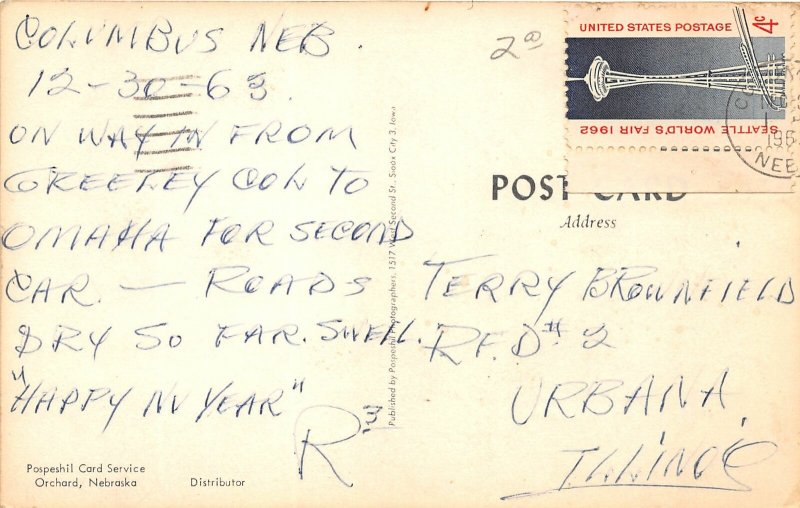 COLUMBUS NEB.
12-30-63.
ON WAY IN FROM
GREELEY COL TO
OMAHA FOR SECOND
CAR. — ROADS
DRY SO FAR. SWELL.
"HAPPY NU YEAR"
R
Pospeshil Card Service
Orchard, Nebraska
Distributor
Published by Pospeshil Photographers, 1517 West Second St., Sioux City 3, Iowa
2@
UNITED STATES POSTAGE
4c
SEATTLE WORLD'S FAIR 1962
196
NEB
POST CARD
Address
TERRY BROWNFIELD
R.F.D #2
URBANA,
ILLINOIS